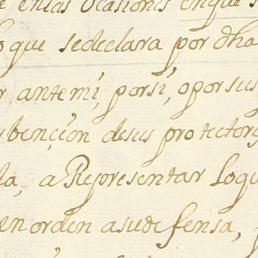 en las Ocasiones en que s
lo que sedeclara por dha
r ante mi, por si, o por sus
bencion desus protector
la, a Representar Loqu
en orden asudefensa,